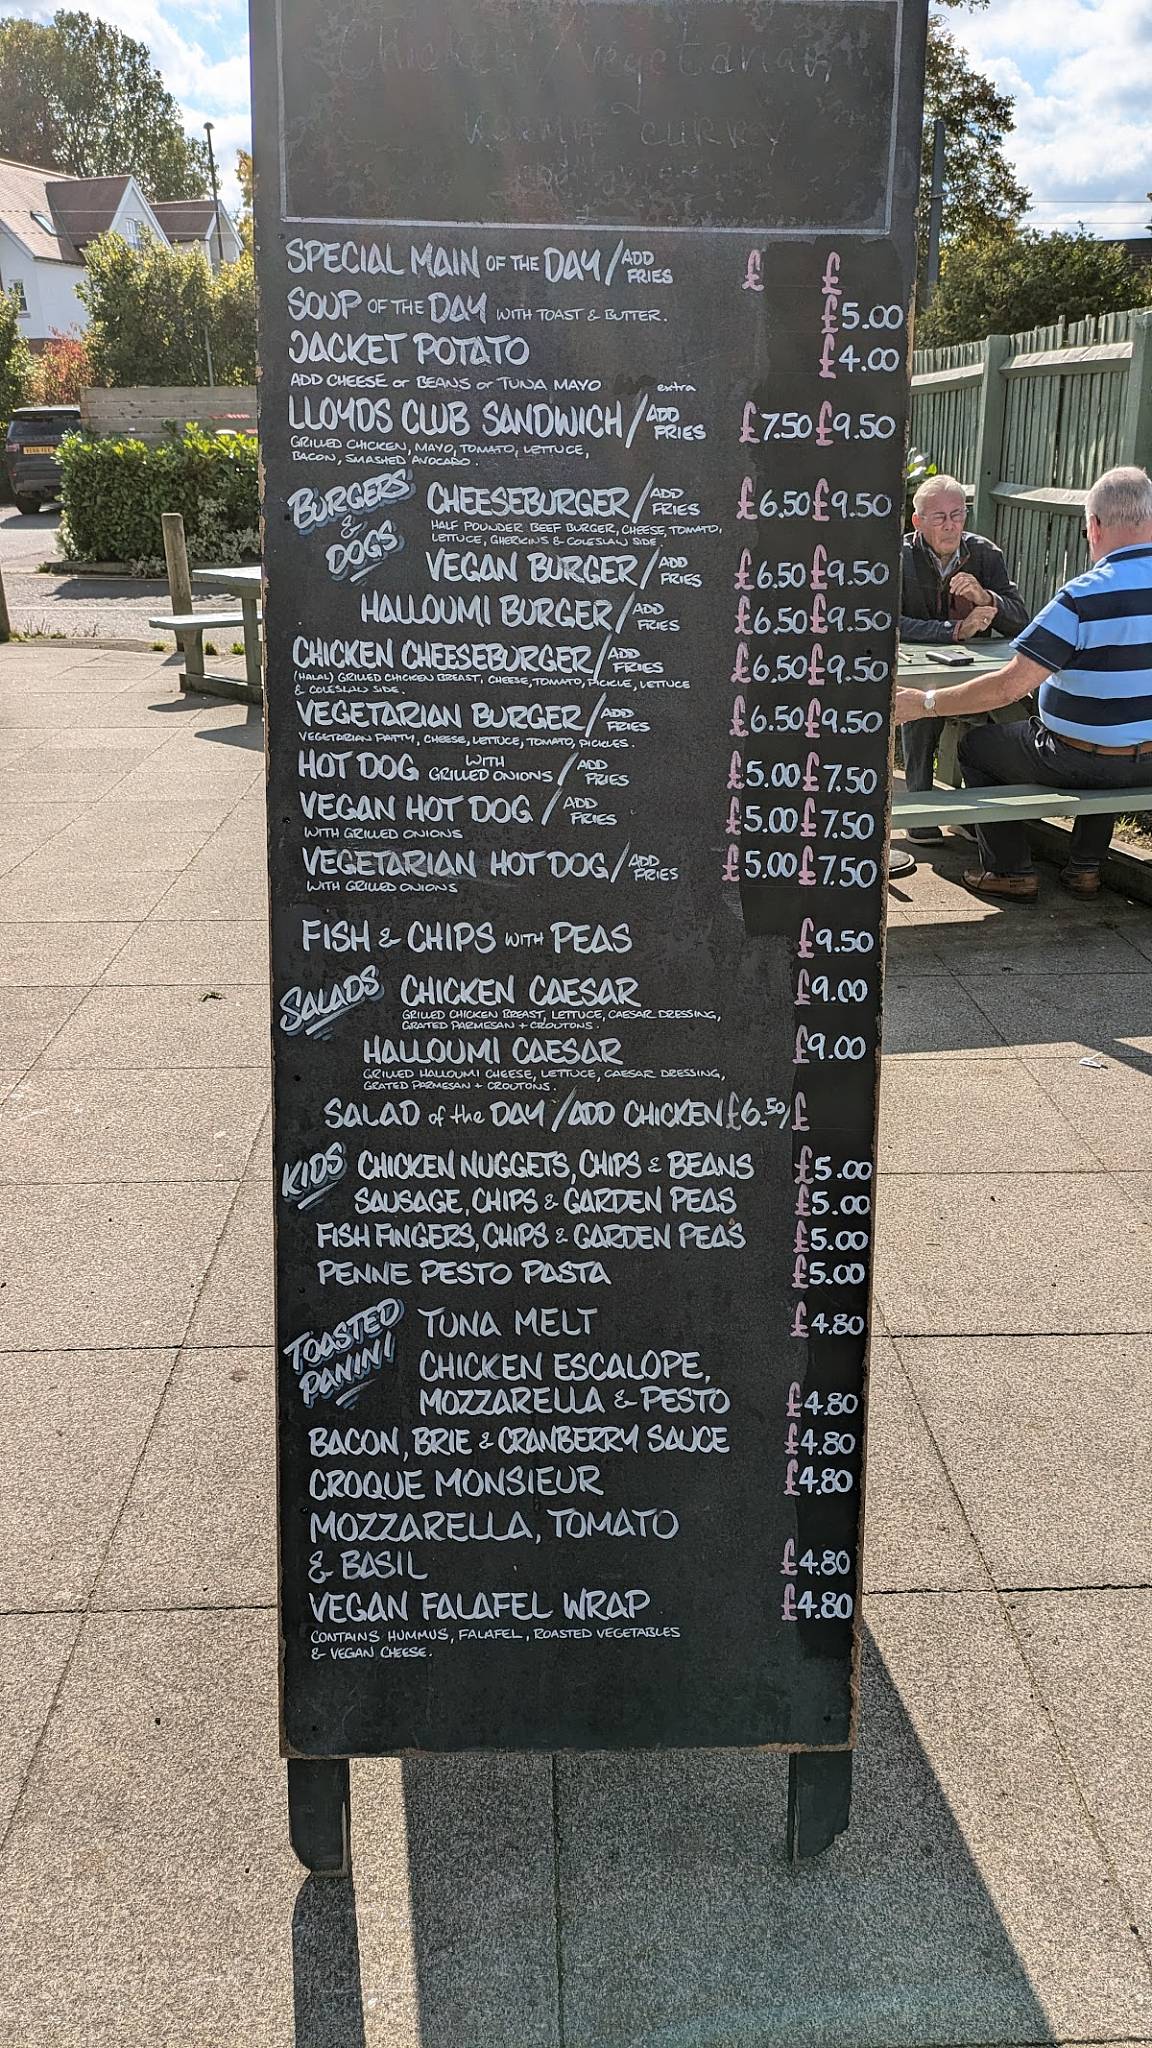 Chicken / Vegetarian
KORMA CURRY
SPECIAL MAIN OF THE DAY / ADD FRIES £ £
SOUP OF THE DAY WITH TOAST & BUTTER. £5.00
JACKET POTATO £4.00
ADD CHEESE or BEANS or TUNA MAYO extra
LLOYDS CLUB SANDWICH / ADD FRIES £7.50 £9.50
GRILLED CHICKEN, MAYO, TOMATO, LETTUCE,
BACON, SMASHED AVOCADO.
BURGERS & DOGS
CHEESEBURGER / ADD FRIES £6.50 £9.50
HALF POUNDER BEEF BURGER, CHEESE, TOMATO,
LETTUCE, GHERKINS & COLESLAW SIDE.
VEGAN BURGER / ADD FRIES £6.50 £9.50
HALLOUMI BURGER / ADD FRIES £6.50 £9.50
CHICKEN CHEESEBURGER / ADD FRIES £6.50 £9.50
(HALAL) GRILLED CHICKEN BREAST, CHEESE, TOMATO, PICKLE, LETTUCE
& COLESLAW SIDE.
VEGETARIAN BURGER / ADD FRIES £6.50 £9.50
VEGETARIAN PATTY, CHEESE, LETTUCE, TOMATO, PICKLES.
HOT DOG WITH GRILLED ONIONS / ADD FRIES £5.00 £7.50
VEGAN HOT DOG / ADD FRIES £5.00 £7.50
WITH GRILLED ONIONS
VEGETARIAN HOT DOG / ADD FRIES £5.00 £7.50
WITH GRILLED ONIONS
FISH & CHIPS WITH PEAS £9.50
SALADS
CHICKEN CAESAR £9.00
GRILLED CHICKEN BREAST, LETTUCE, CAESAR DRESSING,
GRATED PARMESAN + CROUTONS.
HALLOUMI CAESAR £9.00
GRILLED HALLOUMI CHEESE, LETTUCE, CAESAR DRESSING,
GRATED PARMESAN + CROUTONS.
SALAD of the DAY / ADD CHICKEN £6.50 / £
KIDS
CHICKEN NUGGETS, CHIPS & BEANS £5.00
SAUSAGE, CHIPS & GARDEN PEAS £5.00
FISH FINGERS, CHIPS & GARDEN PEAS £5.00
PENNE PESTO PASTA £5.00
TOASTED PANINI
TUNA MELT £4.80
CHICKEN ESCALOPE,
MOZZARELLA & PESTO £4.80
BACON, BRIE & CRANBERRY SAUCE £4.80
CROQUE MONSIEUR £4.80
MOZZARELLA, TOMATO
& BASIL £4.80
VEGAN FALAFEL WRAP £4.80
CONTAINS HUMMUS, FALAFEL, ROASTED VEGETABLES
& VEGAN CHEESE.